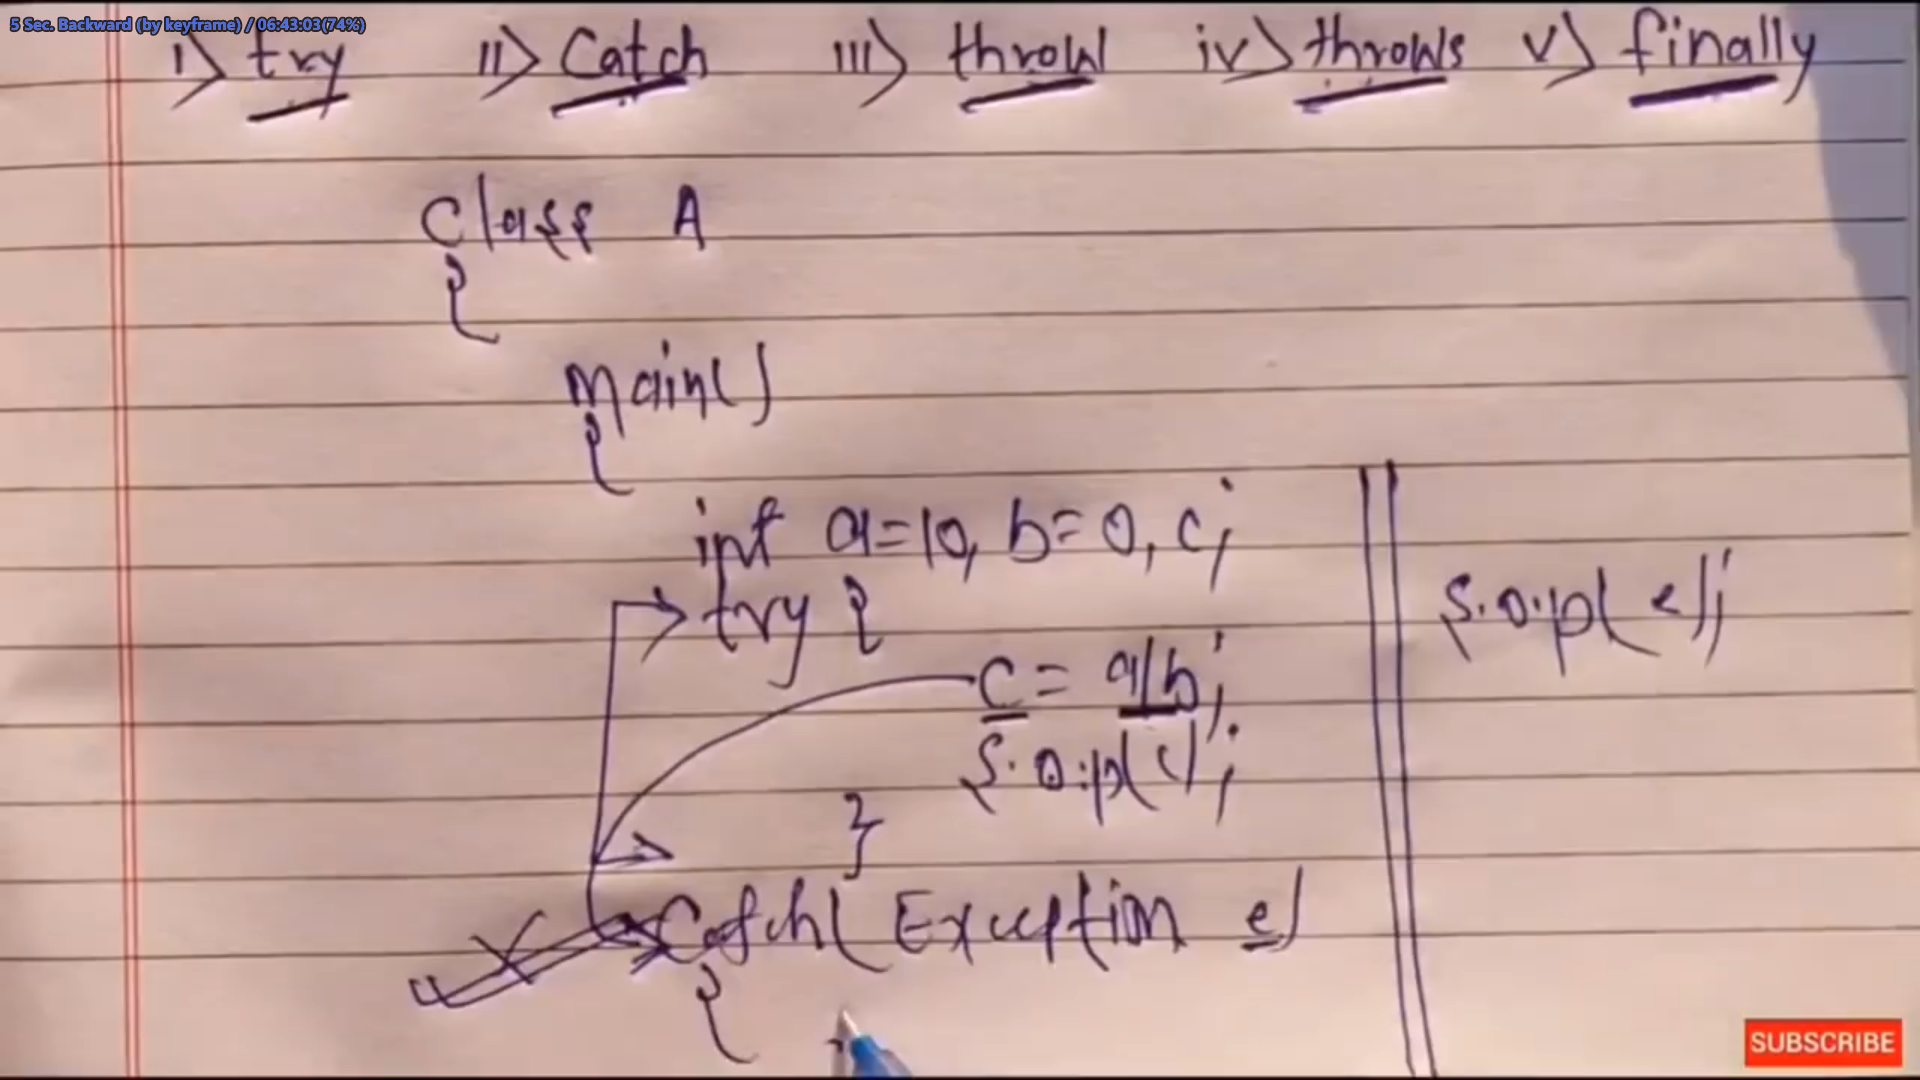 5 Sec. Backward (by keyframe) / 06:43:03(74%)
i) try ii) Catch iii) throw iv) throws v) finally
Class A
{
main()
{
int a=10, b=0, c;
try {
c = a/b;
S.o.p(c);
}
Catch( Exception e)
{
S.o.p( e);
SUBSCRIBE